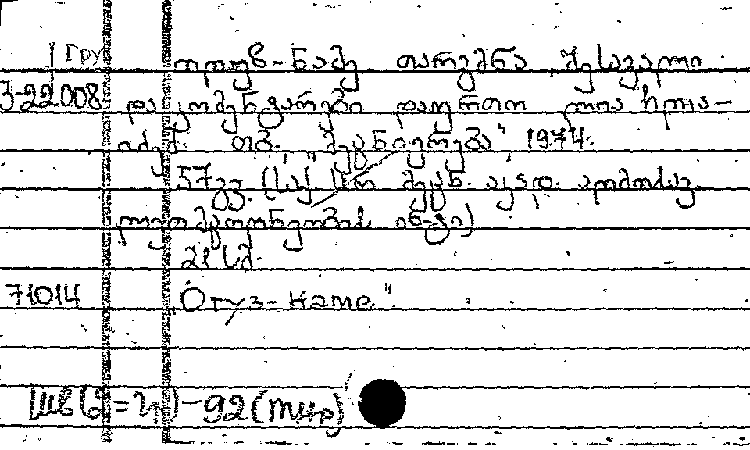 Гру
ოღუზ-ნამე თარგმნა, შესავალი
3-22.008 და კომენტარები დაურთო ლია ჩლა-
იძემ. თბ. "მეცნიერება", 1974.
57 გვ. (საქ. სსრ მეცნ. აკად. აღმოსავ-
ლეთმცოდნეობის ინ-ტი)
21 სმ.
71014 "Огуз-наме"
92(